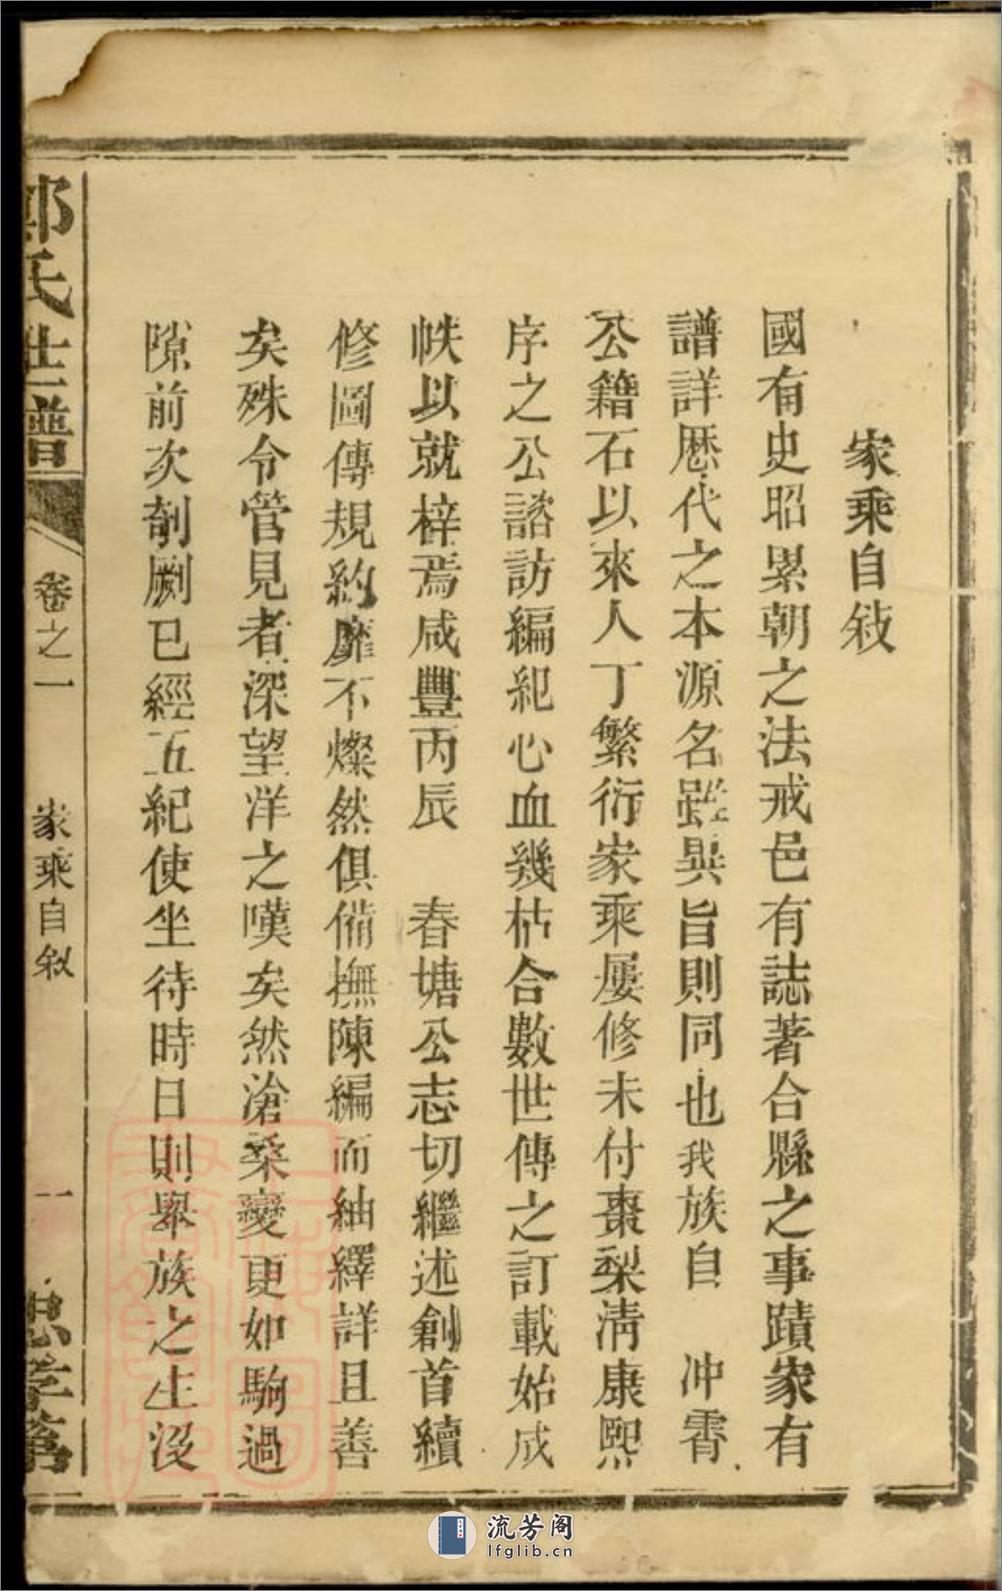 家乘自敍
國有史昭累朝之法戒邑有誌著合縣之事蹟家有
譜詳厯代之本源名雖異旨則同也我族自 冲霄
公籍石以來人丁繁衍家乘屢修未付棗梨淸康熙
序之公諮訪編紀心血幾枯合數世傳之訂載始成
帙以就梓焉咸豐丙辰 春塘公志切繼述創首續
修圖傳規約靡不燦然俱備撫陳編而紬繹詳且善
矣殊令管見者深望洋之嘆矣然滄桑變更如駒過
隙前次剞劂已經五紀使坐待時日則舉族之生沒
郭氏世譜
卷之一
家乘自敘
一
忠孝第
流芳阁
lfglib.cn